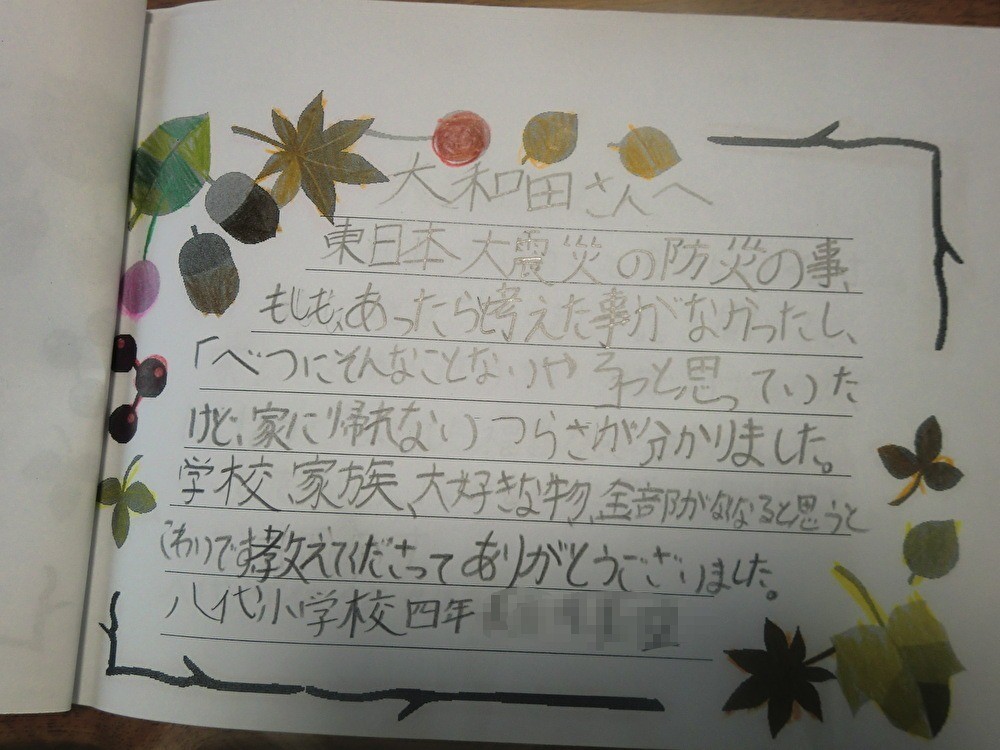 大和田さんへ
東日本大震災の防災の事、
もしも、あったらと考えた事がなかったし、
「べつにそんなことないやろっと思っていた
けど、家に帰れないつらさが分かりました。
学校、家族、大好きな物、全部がなくなると思うと
こわいです教えてくださってありがとうございました。
八代小学校四年